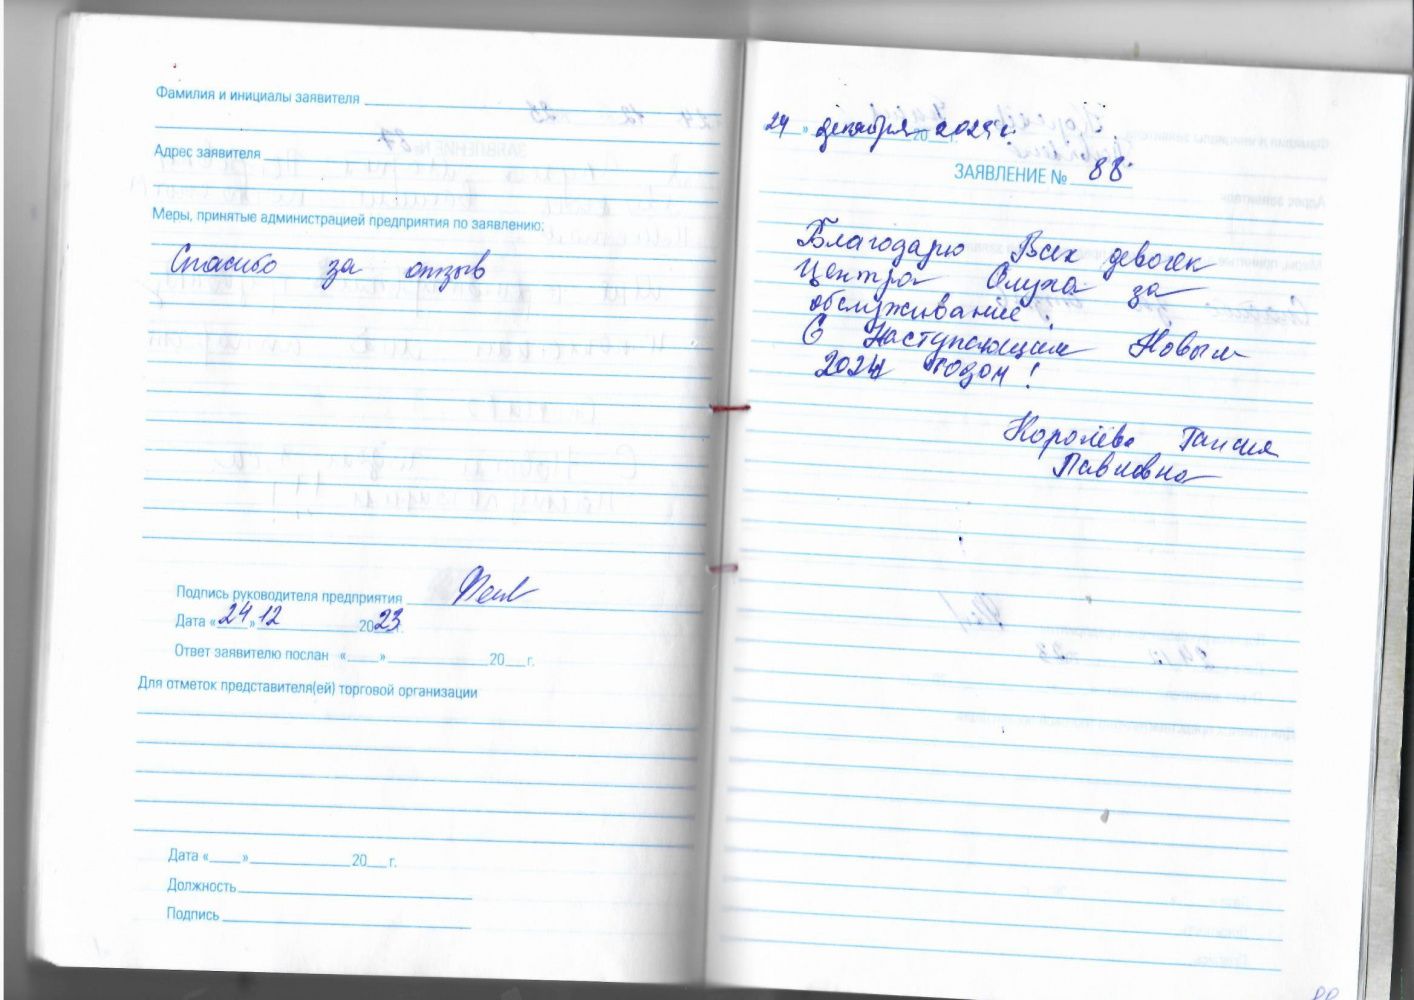 Фамилия и инициалы заявителя
Адрес заявителя
Меры, принятые администрацией предприятия по заявлению:
Спасибо за отзыв
Подпись руководителя предприятия
Дата «24»12 2023г.
Ответ заявителю послан «___»___20__г.
Для отметок представителя(ей) торговой организации
Дата «___»___20__г.
Должность
Подпись
24 » декабря 20 г.
ЗАЯВЛЕНИЕ № 88
Благодарю Всех девочек
Центра Слуха за
обслуживание
С Наступающим Новым
2024 годом!
Королёва Таисия
Павловна